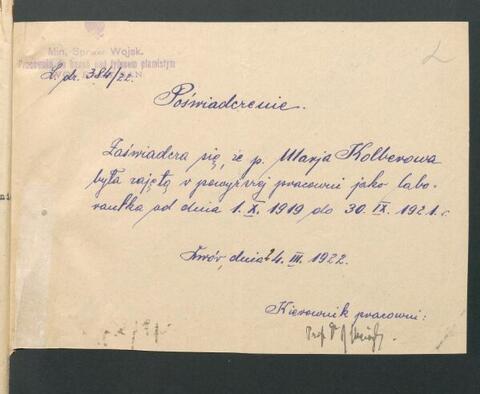 Min. Spraw Wojsk.
Pracownia do badań nad tyfusem plamistym
L. dz. 384/22.
Poświadczenie.
Zaświadcza się, że p. Marja Kolberowa
była zajętą w powyższej pracowni jako labo-
rantka od dnia 1. X. 1919 do 30. IX. 1921. r.
Lwów, dnia 24. III. 1922.
Kierownik pracowni:
Prof. Dr